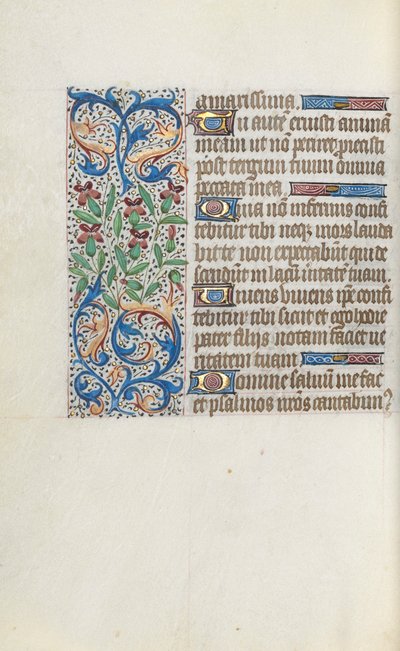 amarissima.
Tu autē eruisti animā
meam ut nō periret proiecisti
post tergum tuum omnia
peccata mea.
Quia nō infernus confi
tebitur tibi neqȝ mors lauda
bit te non expectabūt qui de
scendūt in lacū uitatē tuam
Uiuens viuens ip̄e confi
tebitur tibi sicut et ego hodie
pater filijs notam faciet ue
ritatem tuam
Domine saluū me fac
et psalmos nr̄os cantabim?